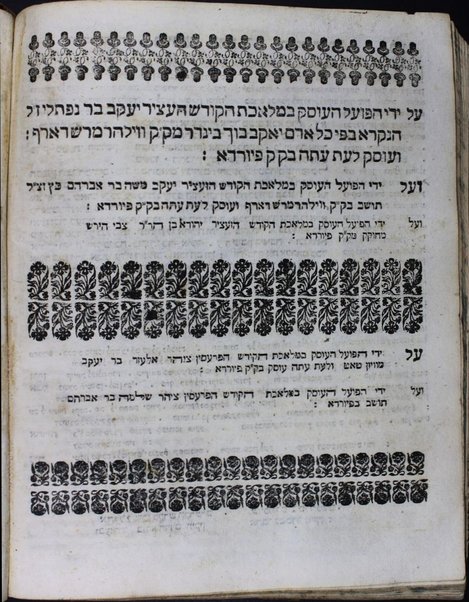 על ידי הפועל העוסק במלאכת הקודש העציר יעקב בר נפתלי ז״ל
הנקרא בפי כל אדם יאקב בוך בינדר מק״ק ווילהרמרשדארף :
ועוסק לעת עתה בק״ק פיורדא :
ועל ידי הפועל העוסק במלאכת הקודש העציר יעקב משה בר אברהם כץ זצ״ל
תושב בק״ק ווילהרמרשדארף ועוסק לעת עתה בק״ק פיורדא :
ועל ידי הפועל העוסק במלאכת הקודש העציר יהודא בן הר״ר צבי הירש
מחוקק מק״ק פיורדא :
על ידי הפועל העוסק במלאכת הקודש הפרעסין ציהר אלעזר בר יעקב
ולעת עתה עוסק בק״ק פיורדא :
ועל ידי הפועל העוסק במלאכת הקודש הפרעסין ציהר שלמה בר אברהם
תושב בפיורדא :